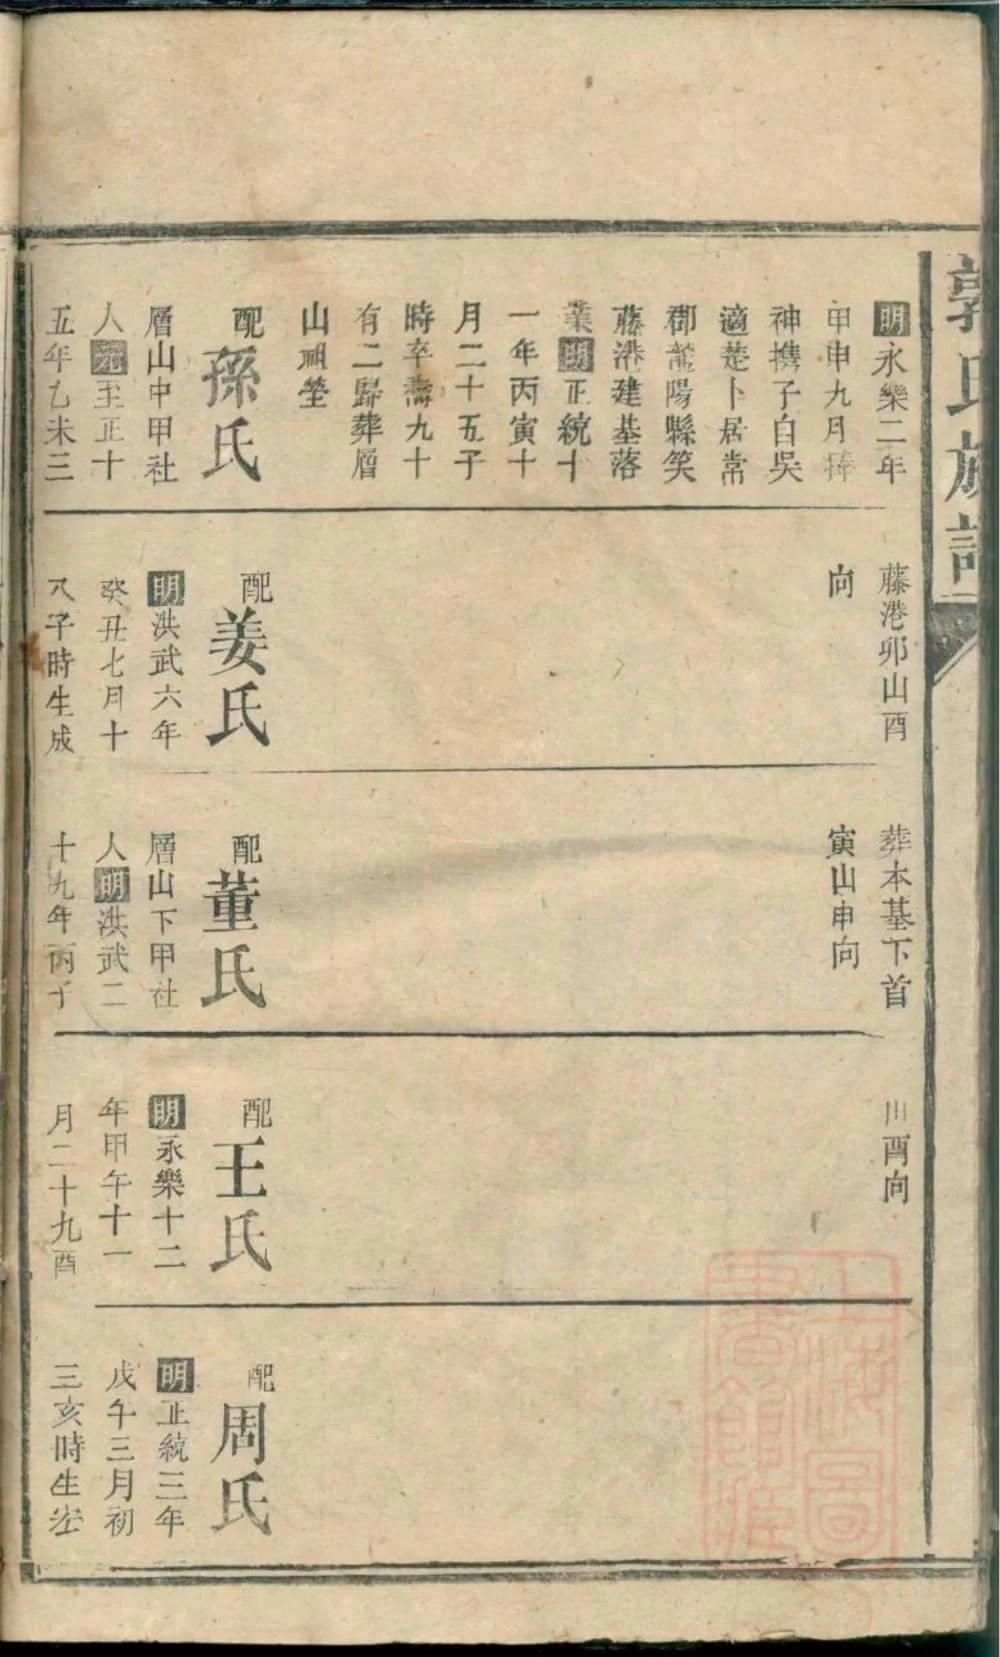 郭氏族譜
明永樂二年
甲申九月捧
神携子自吳
適楚卜居常
郡龍陽縣笑
藤港建基落
業明正統十
一年丙寅十
月二十五子
時卒壽九十
有二歸葬層
山祖塋
配孫氏
層山中甲社
人元至正十
五年乙未三
藤港卯山酉
向
配姜氏
明洪武六年
癸丑七月十
八子時生成
葬本基下首
寅山申向
配董氏
層山下甲社
人明洪武二
十九年丙子
酉向
配王氏
明永樂十二
年甲午十一
月二十九酉
配周氏
明正統三年
戊午三月初
三亥時生塟
上海圖書館藏